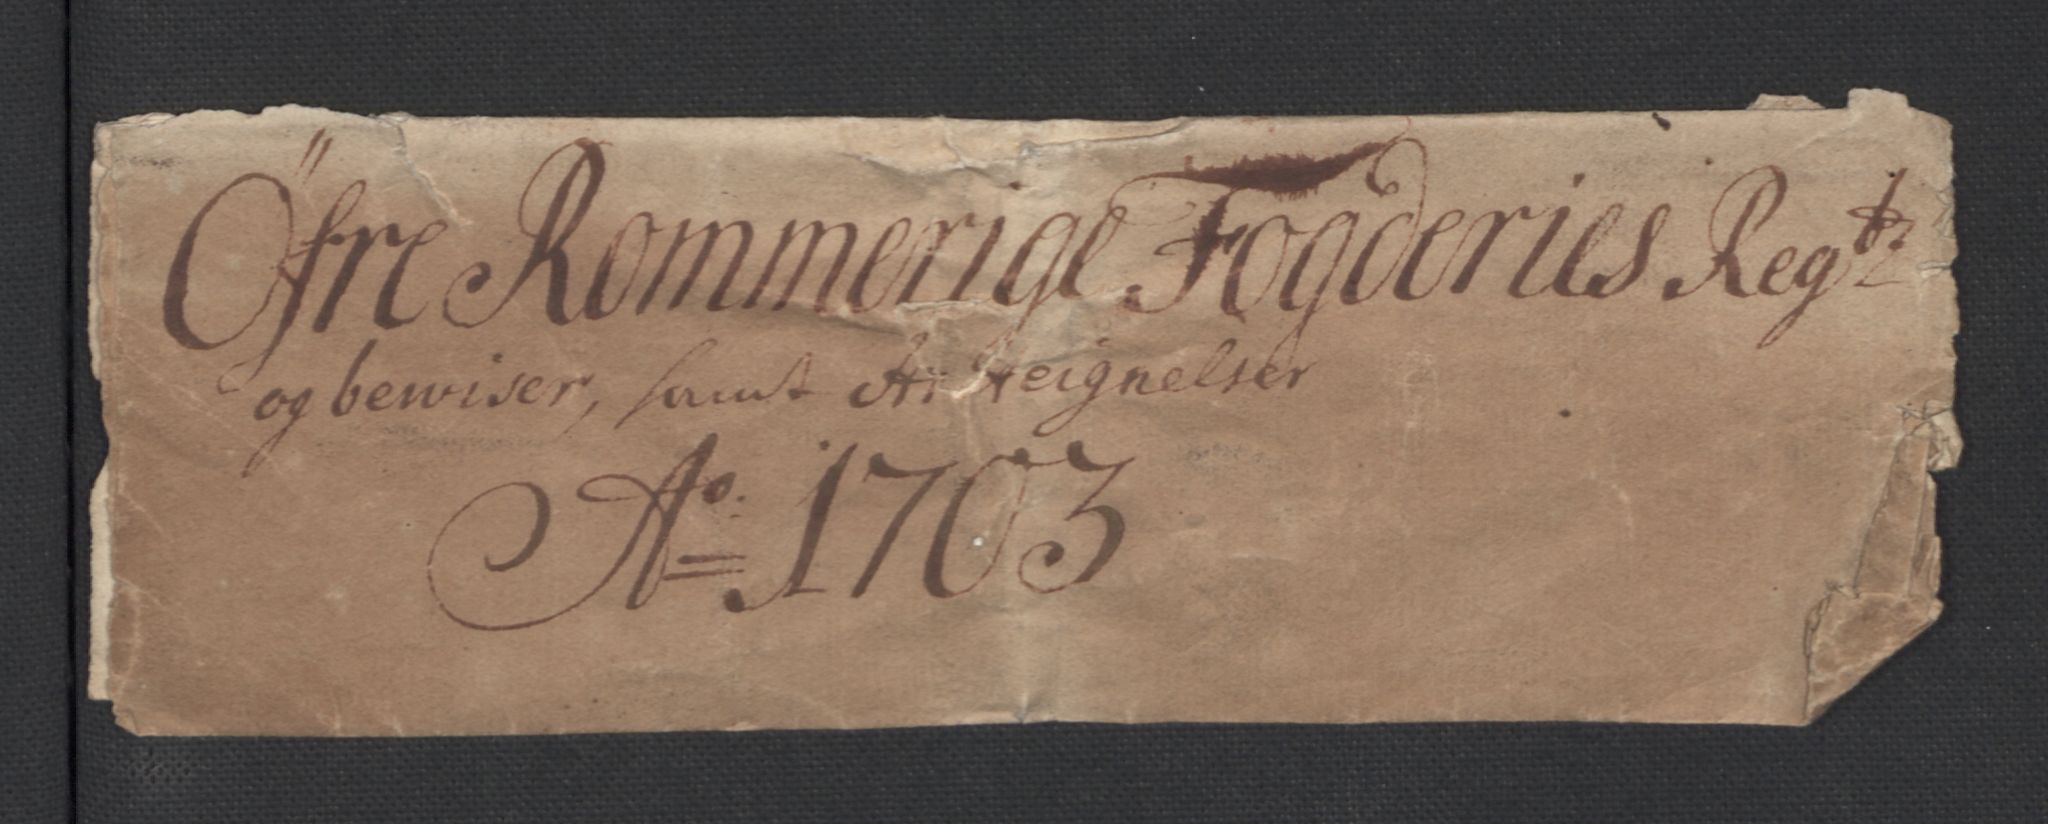 Öfre Rommerige Fogderies Regbr
og bewiser, samt Anteignelser
Ao. 1703